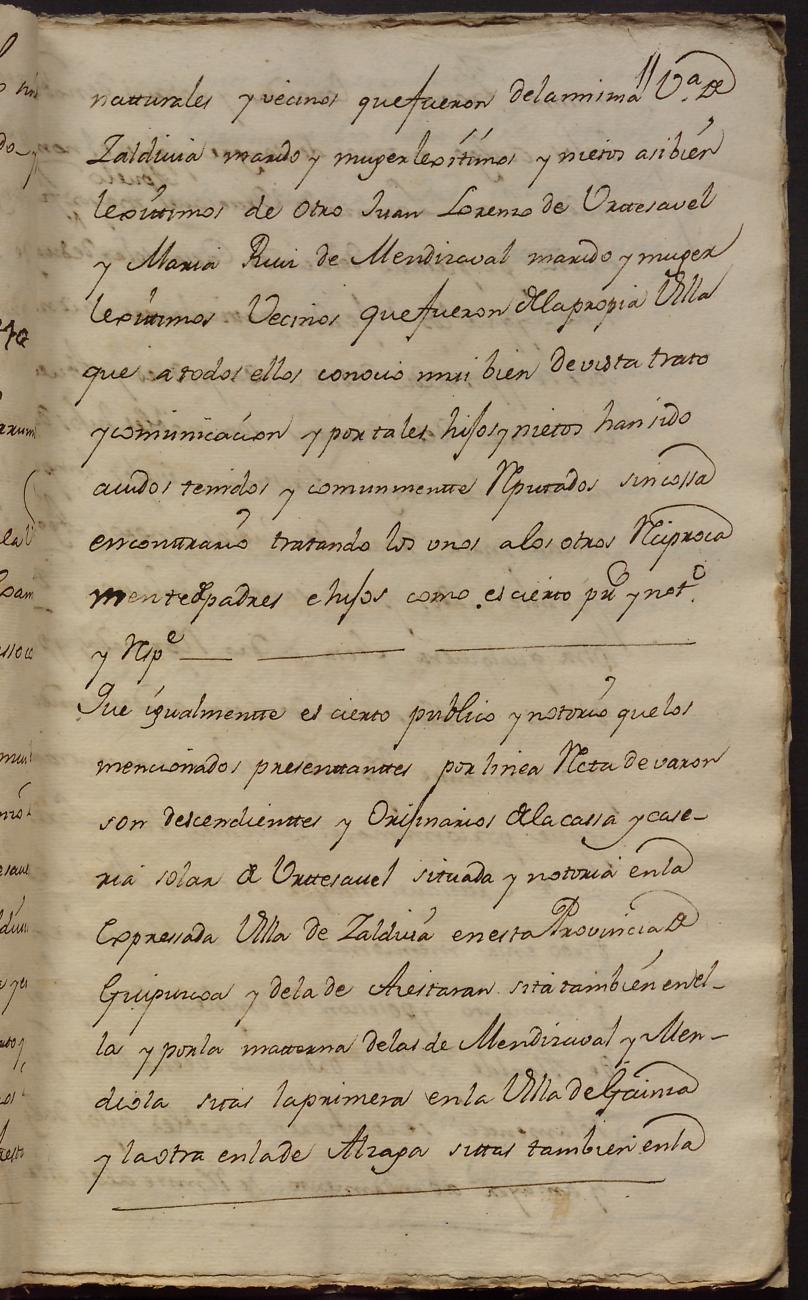 natturales y vecinos que fueron delamisma V.ª de
Zaldivia marido y muger lexítimos y nietos asibien
lexittimos de otro Juan Lorenzo de Urttesavel
y Maria Ruiz de Mendizaval marido y muger
lexittimos Vecinos que fueron delapropia Villa
que atodos ellos conocio mui bien devista trato
ycomunicacion y portales hijos y nietos hansido
avidos tenidos y comunmentte Reputados sincossa
encontrario tratando los unos alos otros Reciproca
mente de padres e hijos como es cierto pu.co y not.º
y Rsp.e
Que igualmentte es cierto publico y notorio quelos
mencionados presenttanttes por linea Recta devaron
son descendienttes y Orijinarios delacassa ycase-
ria solar de Urttesavel situada y notoria enla
Expressada Villa de Zaldivia enesta Provincia de
Guipuzcoa y dela de Aiestaran sita también enel-
la y porla matterna delas de Mendizaval y Men-
diola sitas laprimera enla Villa de Gainza
y laotra enlade Alzaga sittas tambien enla